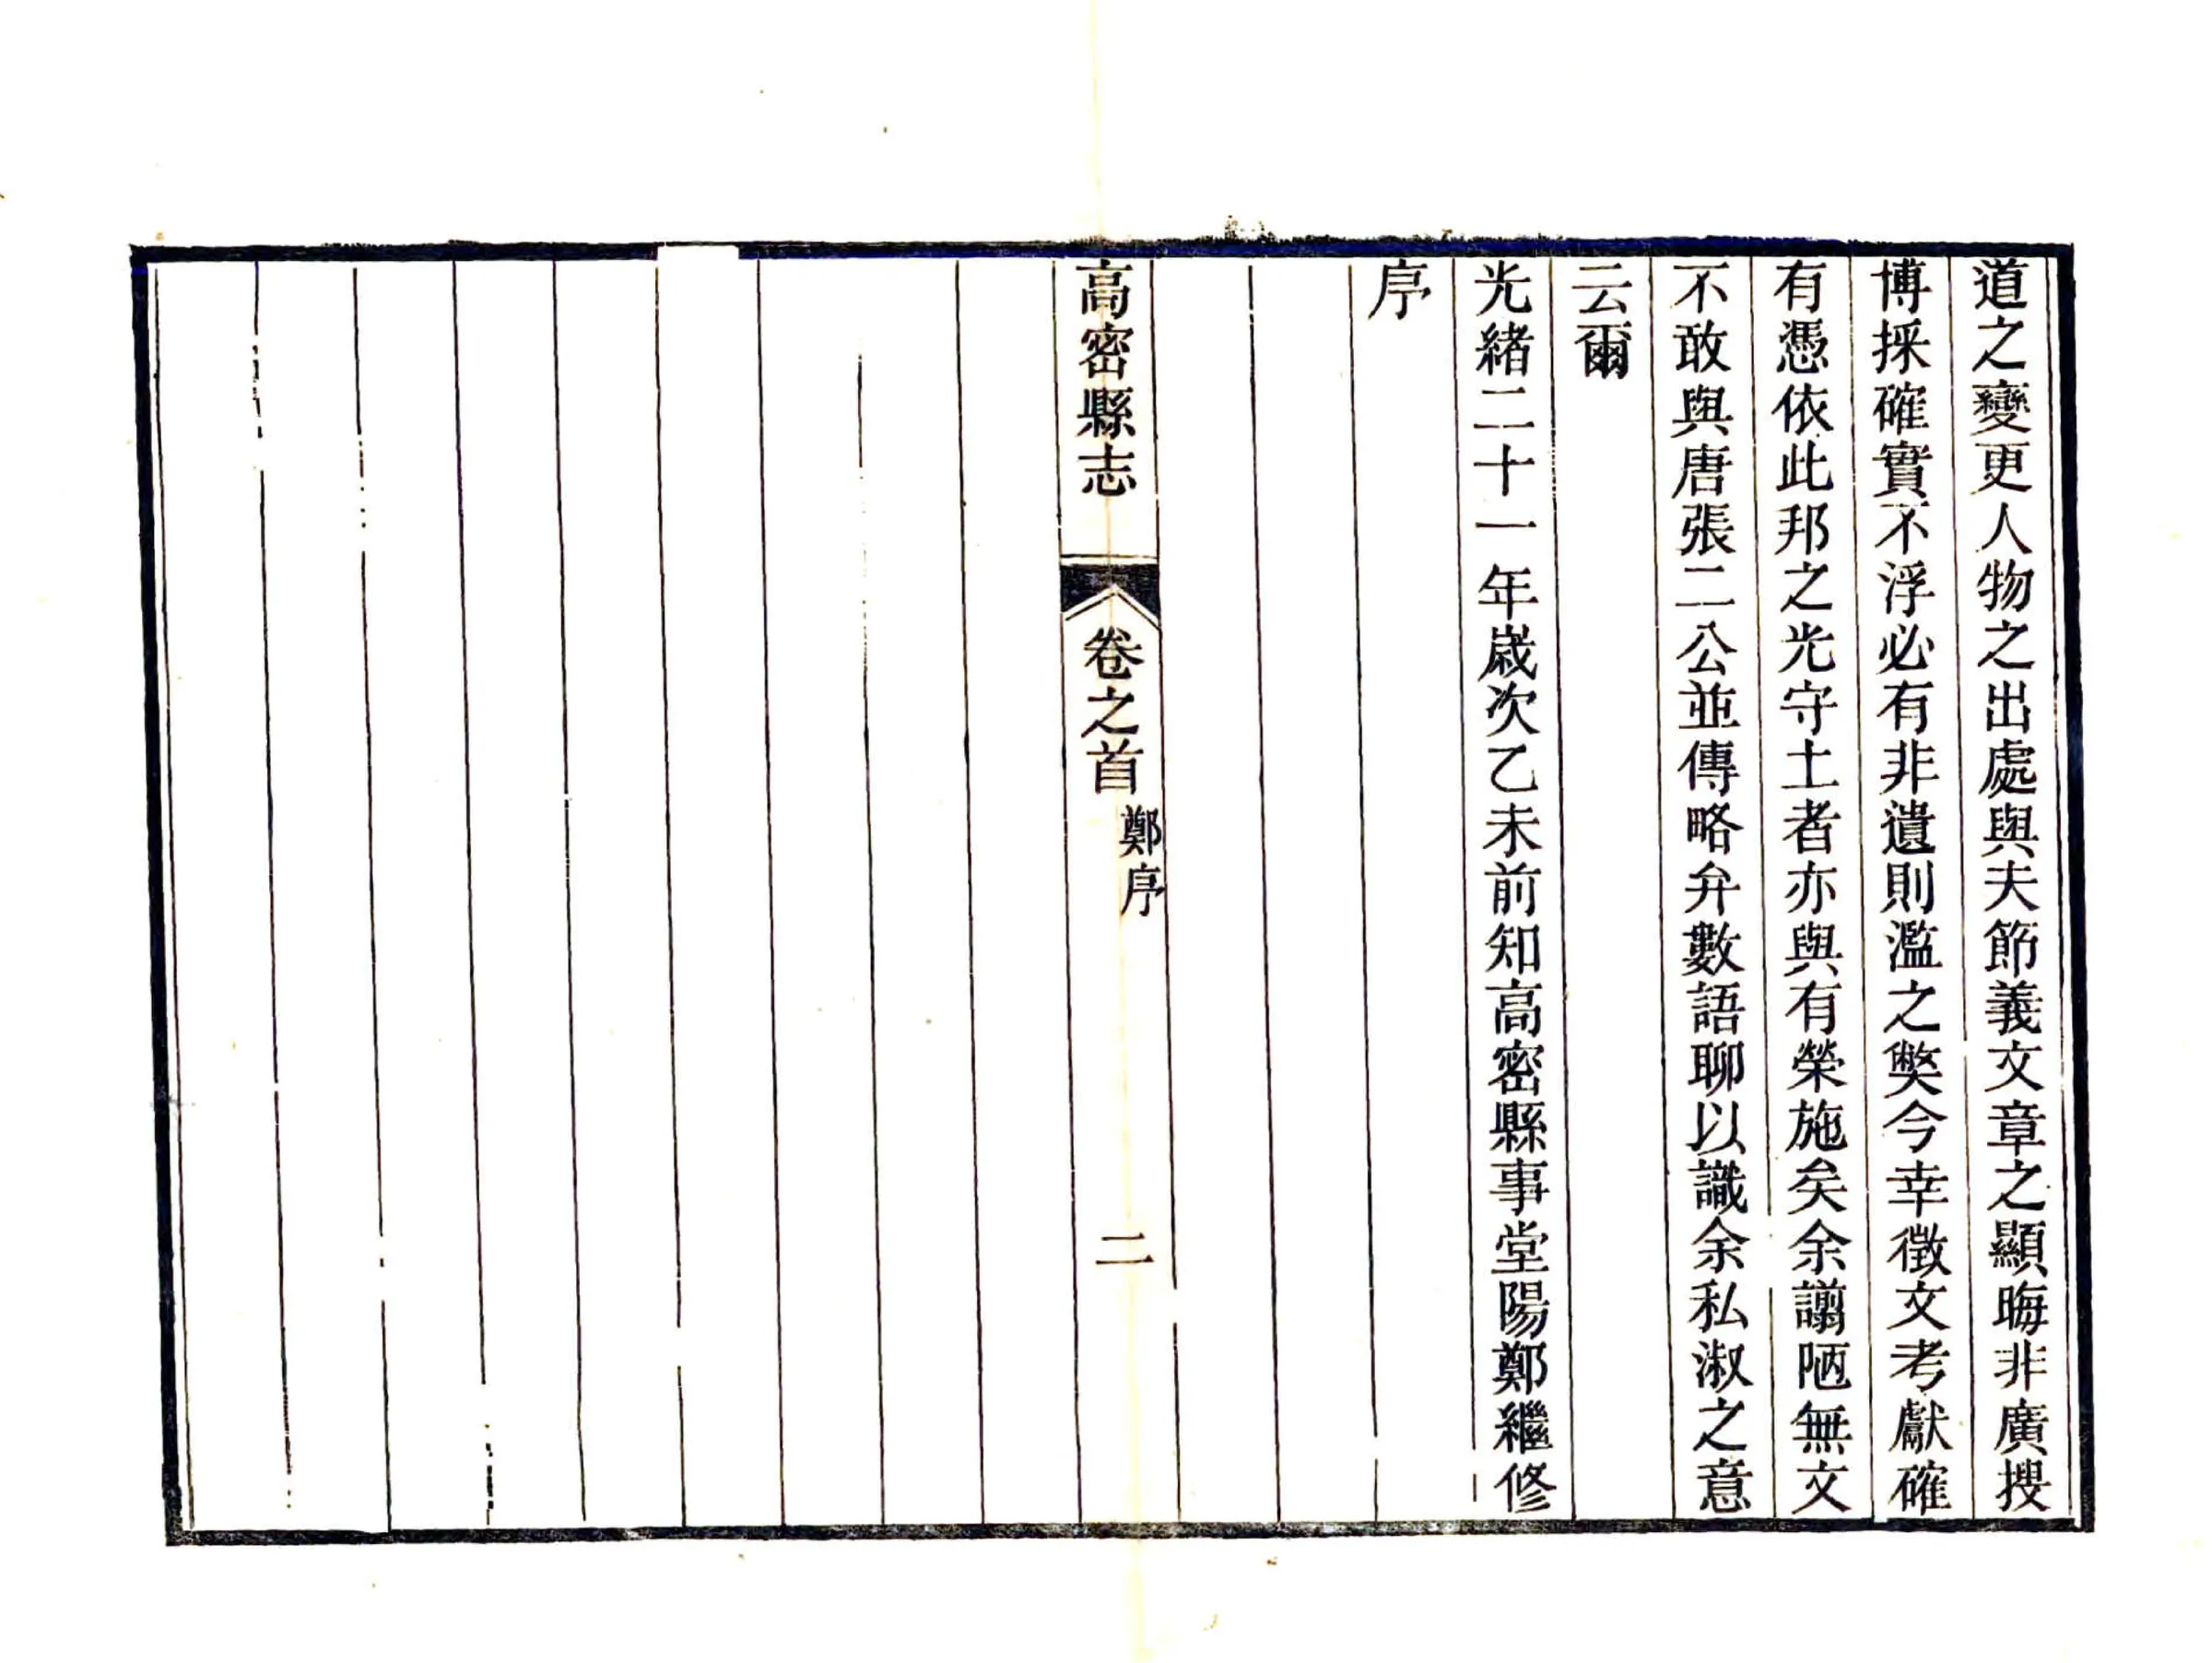 道之變更人物之出處與夫節義文章之顯晦非廣搜
博採確實不浮必有非遺則濫之獘今幸徵文考獻確
有憑依此邦之光守土者亦與有榮施矣余譾陋無文
不敢與唐張二公並傳略弁數語聊以識余私淑之意
云爾
光緒二十一年歲次乙未前知高密縣事堂陽鄭繼修
序
高密縣志
卷之首
鄭序
二